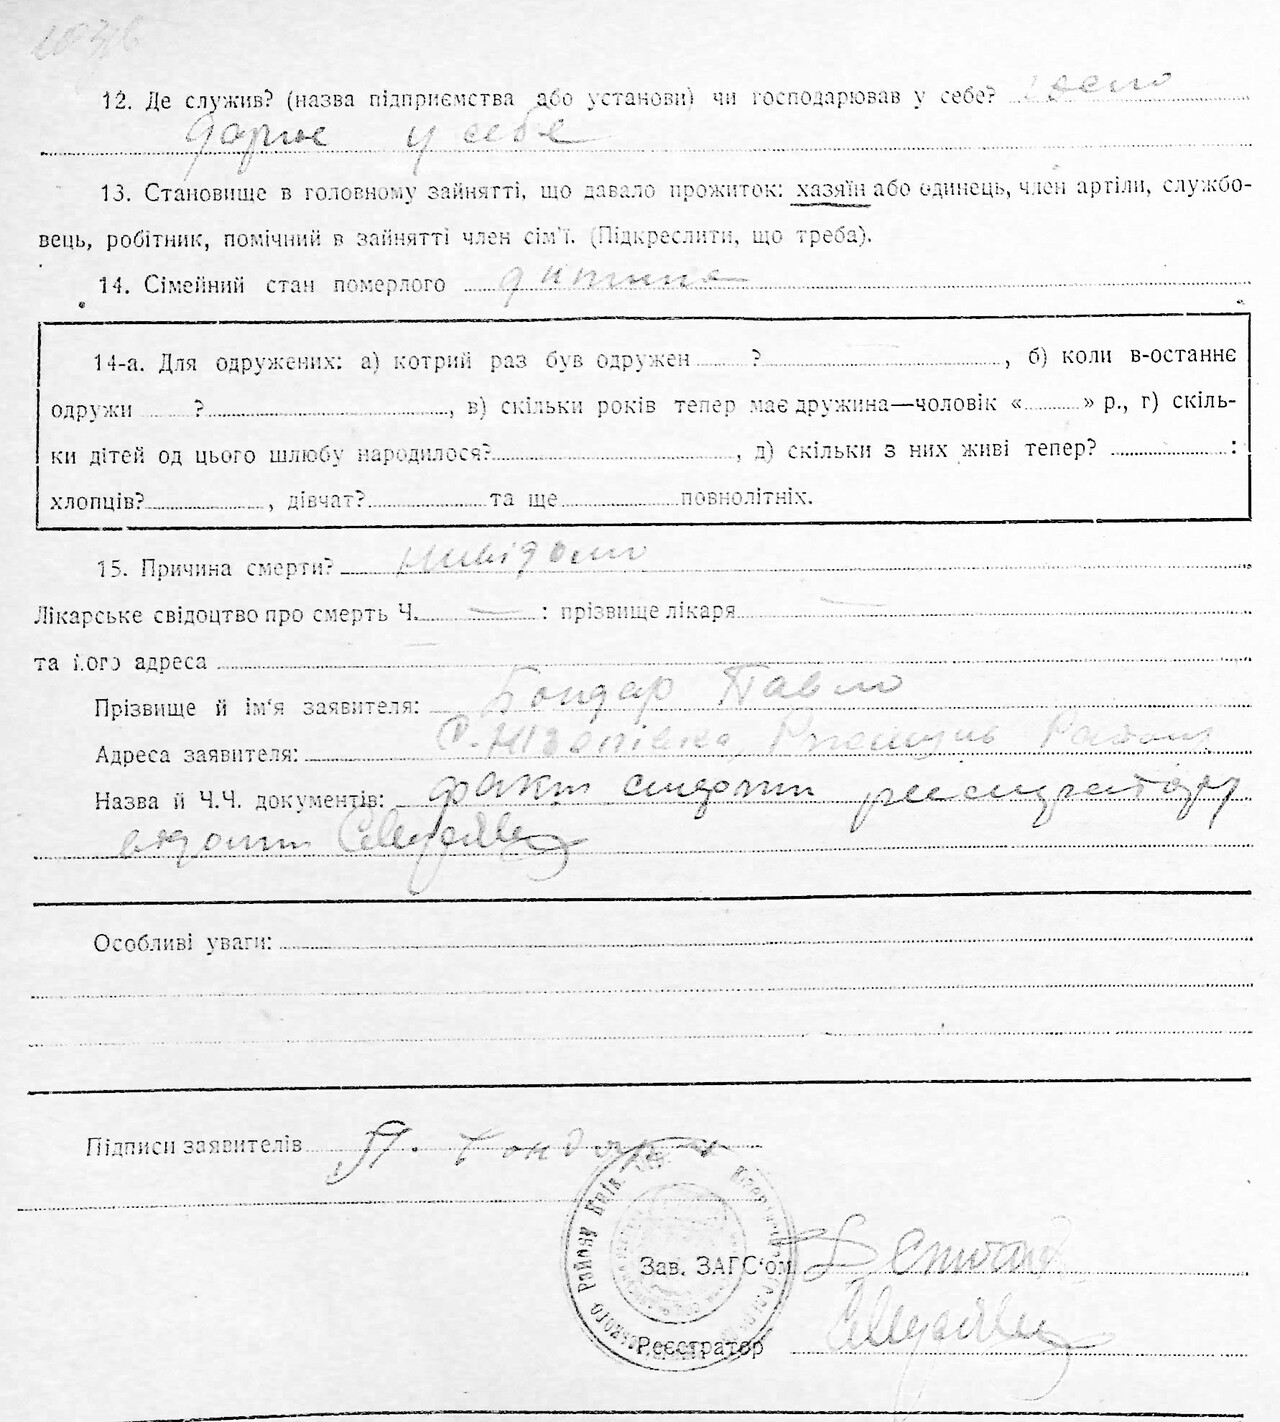 12. Де служив? (назва підприємства або установи) чи господарював у себе? госпо
дарює у себе
13. Становище в головному зайнятті, що давало прожиток: хазяїн або одинець, член артіли, службо-
вець, робітник, помічний в зайнятті член сім'ї. (Підкреслити, що треба).
14. Сімейний стан померлого дитина
14-а. Для одружених: а) котрий раз був одружен ? , б) коли в-останнє
одружи ? , в) скільки років тепер має дружина—чоловік « » р., г) скіль-
ки дітей од цього шлюбу народилося? , д) скільки з них живі тепер? :
хлопців? , дівчат? та ще повнолітніх.
15. Причина смерти? невідомо
Лікарське свідоцтво про смерть Ч. — : прізвище лікаря —
та його адреса
Прізвище й ім'я заявителя: Бондар Павло
Адреса заявителя: с.
Назва й Ч.Ч. документів: факт смерти реєстратору
відомий
Особливі уваги:
Підписи заявителів П. Бондар
Району Київ.
Зав. ЗАГС'ом
Реєстратор